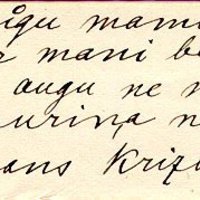 īgu mam
mani be
augu ne
uriņa n
ans Krizu